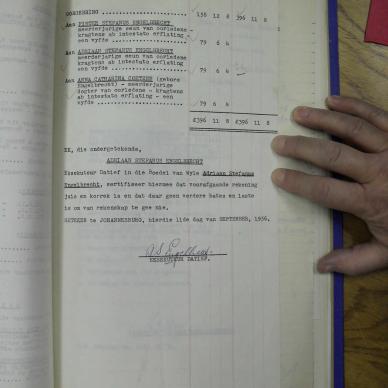 OORDEELING .................... 158 12 8 396 11 8
Aan PIETER STEFANUS ENGELBRECHT
meerderjarige seun van oorledene
kragtens ab intestato erflating
een vyfde .................... 79 6 4
Aan ADRIAAN STEFANUS ENGELBRECHT
meerderjarige seun van oorledene
kragtens ab intestato erflating
een vyfde .................... 79 6 4
Aan ANNA CATHARINA COETZEE (gebore
Engelbrecht) - meerderjarige
dogter van oorledene - kragtens
ab intestato erflating - een
vyfde .................... 79 6 4
£396 11 8 £396 11 8
EK, die ondergetekende,
ADRIAAN STEFANUS ENGELBRECHT
Eksekuteur Datief in die Boedel van Wyle Adriaan Stefanus
Engelbrecht, sertifiseer hiermee dat voorafgaande rekening
juis en korrek is en dat daar geen verdere bates en laste
is om van rekenskap te gee nie.
GETEKEN te JOHANNESBURG, hierdie 11de dag van SEPTEMBER, 1956.
A.S. Engelbrecht
EKSEKUTEUR DATIEF.